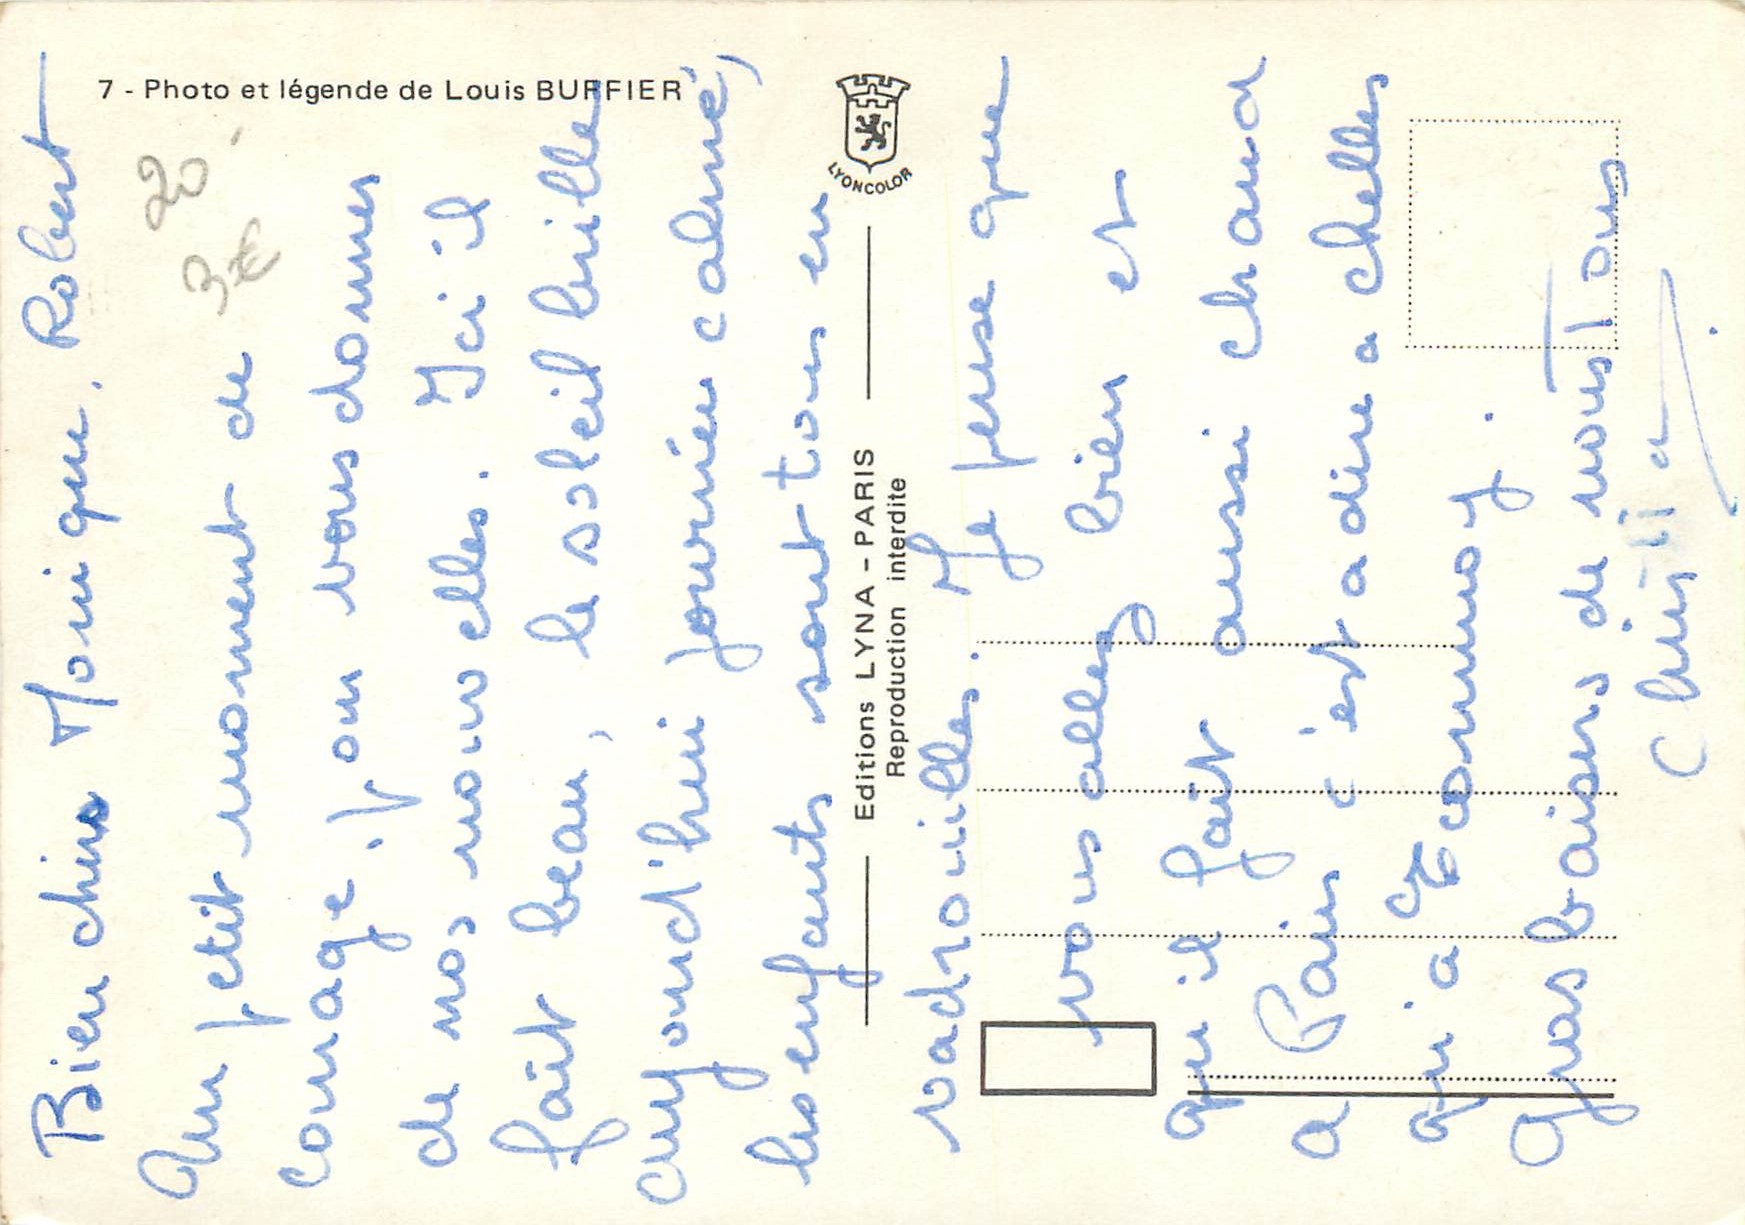 7 - Photo et légende de Louis BUFFIER
20
3€
LYONCOLOR
Editions LYNA - PARIS
Reproduction interdite
Bien chers Monique. Robert
Un petit moment de
courage, pour vous donner
de nos nouvelles. Ici il
fait beau, le soleil brille
aujourd'hui journée calme,
les enfants sont tous en
vadrouilles. Je pense que
vous allez bien et
qu'il fait aussi chaud
a Paris c'est a dire a chelles
qu'a Econnoy.
Gros baisers de nous Tous